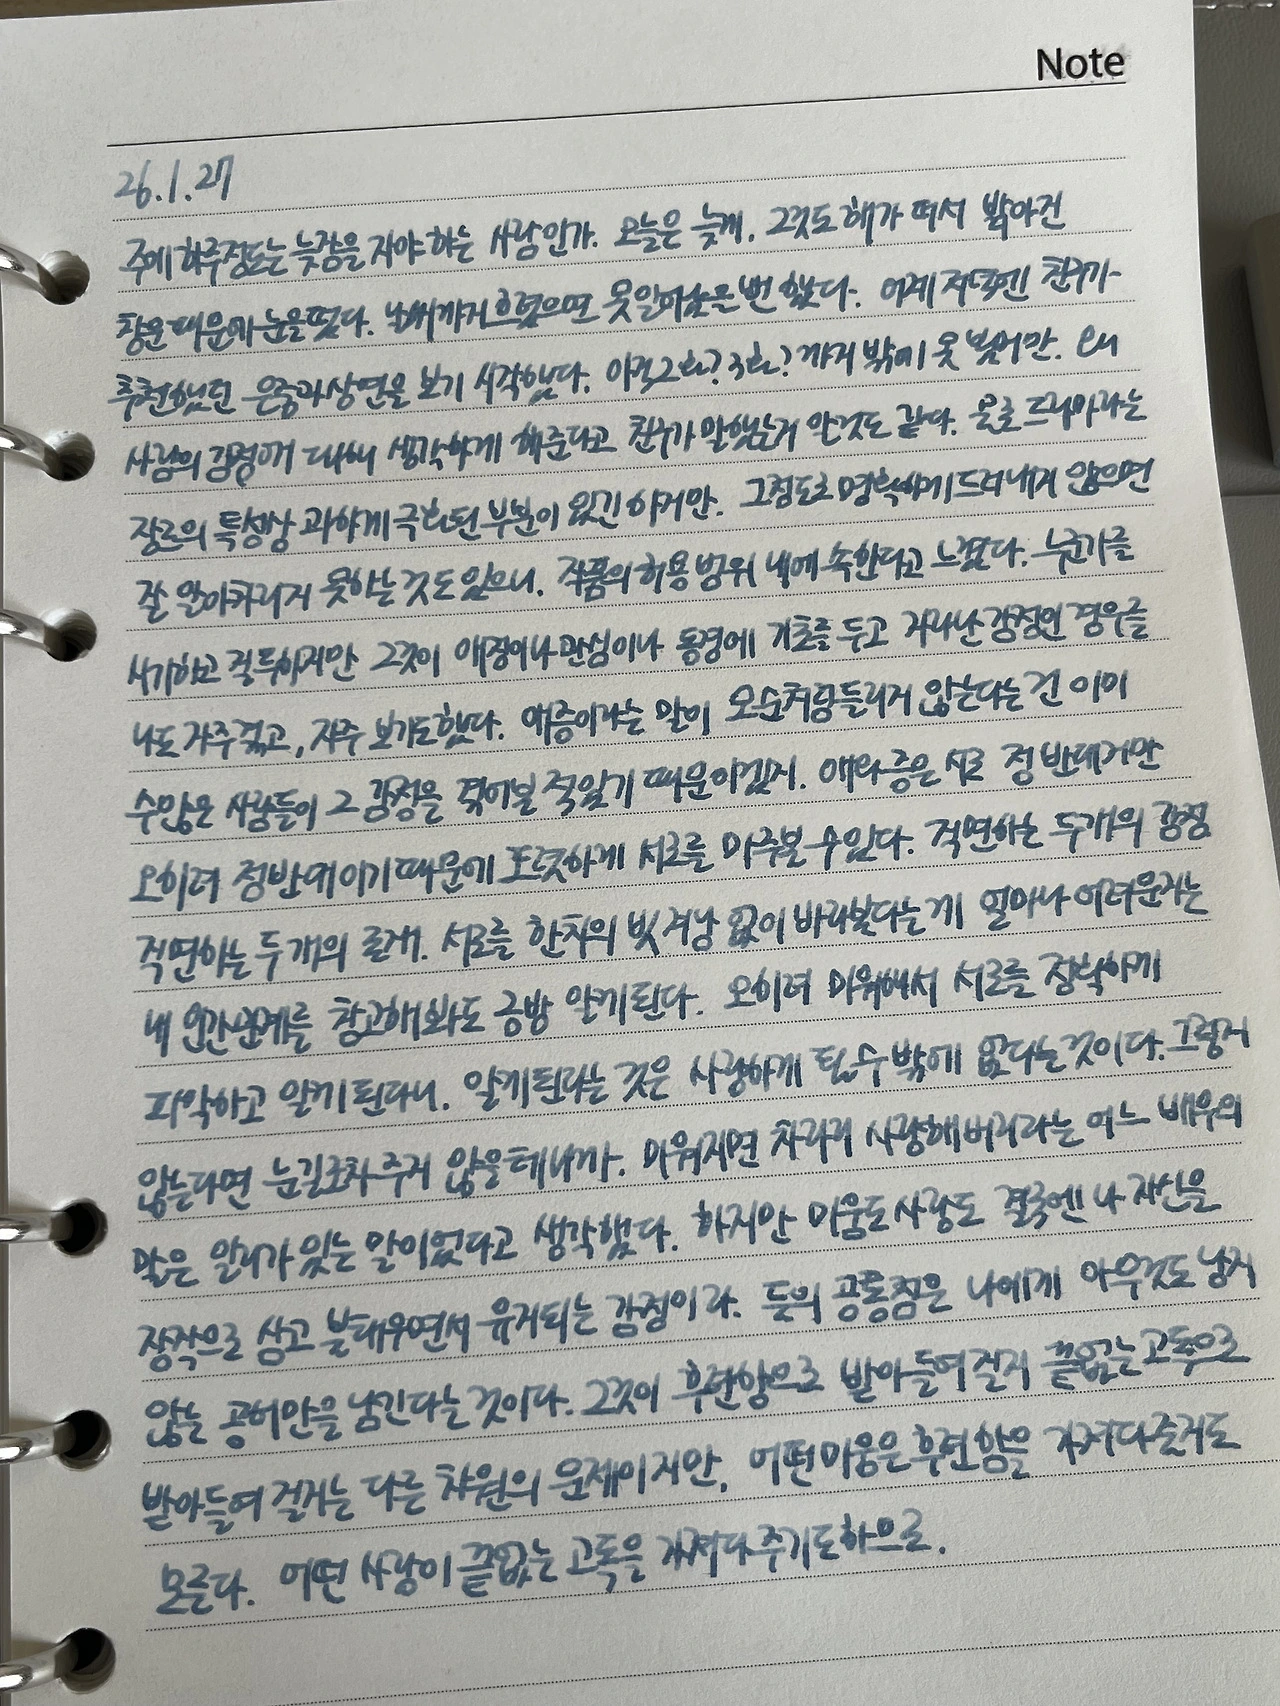 Note
26.1.27
주에 하루정도는 늦잠을 자야 하는 사람인가. 오늘은 늦게, 그것도 해가 떠서 밝아진
창문 때문에 눈을 떴다. 날씨까지 흐렸으면 못 일어날 뻔 했다. 어제 저녁엔 친구가
추천했던 은중과 상연을 보기 시작했다. 아직 2화? 3화? 까지 밖에 못 봤지만. 왜
사람의 감정에 대해 생각하게 해준다고 친구가 말했는지 알 것도 같다. 물론 드라마라는
장르의 특성상 과하게 극화된 부분이 있긴 하지만. 그정도로 명확하게 드러내지 않으면
잘 알아차리지 못하는 것도 있으니. 작품의 허용 범위 내에 속한다고 느꼈다. 누군가를
시기하고 질투하지만 그것이 애정이나 관심이나 동경에 기초를 두고 자라난 감정인 경우를
나도 자주 겪고, 자주 보기도 했다. 애증이라는 말이 모순처럼 들리지 않는다는 건 이미
수많은 사람들이 그 감정을 겪어본 적 있기 때문이겠지. 애와 증은 서로 정 반대지만
오히려 정반대이기 때문에 또렷하게 서로를 마주볼 수 있다. 직면하는 두 개의 감정
직면하는 두 개의 존재. 서로를 한치의 빗겨남 없이 바라본다는게 얼마나 어려운지는
내 인간관계를 참고해봐도 금방 알게 된다. 오히려 미워해서 서로를 정확하게
파악하고 알게 된다니. 알게 된다는 것은 사랑하게 될 수 밖에 없다는 것이다. 그렇지
않는다면 눈길조차 주지 않을 테니까. 미워지면 차라리 사랑해버리라는 어느 배우의
말은 일리가 있는 말이었다고 생각했다. 하지만 미움도 사랑도 결국엔 나 자신을
장작으로 삼고 불태우면서 유지되는 감정이라. 둘의 공통점은 나에게 아무것도 남지
않는 공허만을 남긴다는 것이다. 그것이 후련함으로 받아들여질지 끝없는 고독으로
받아들여 질지는 다른 차원의 문제이지만, 어떤 미움은 후련함을 가져다 줄지도
모른다. 어떤 사랑이 끝없는 고독을 가져다 주기도 하므로.